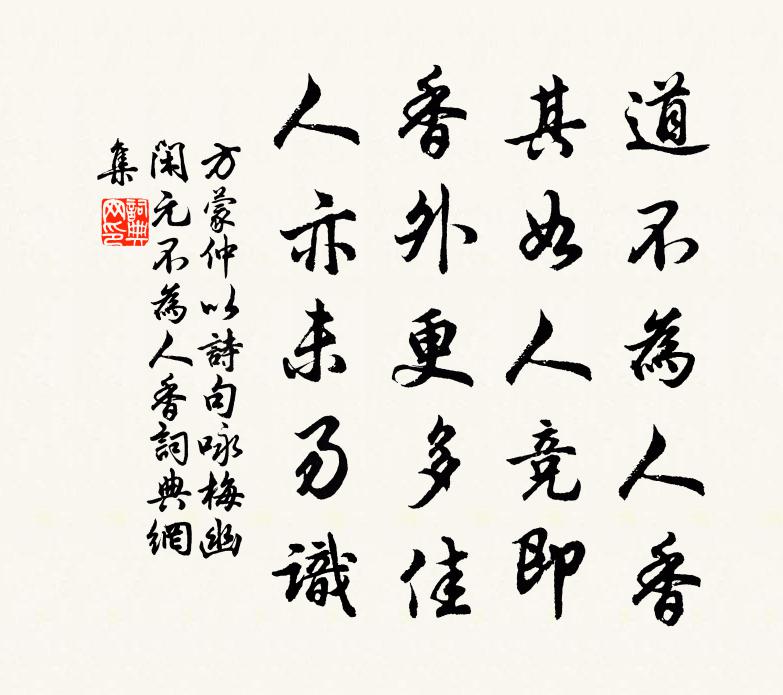 道不為人香
其如人競即
香外更多佳
人亦未易識
方蒙仲以詩句咏梅幽
閑元不為人香詞典網
集
詞典
网印